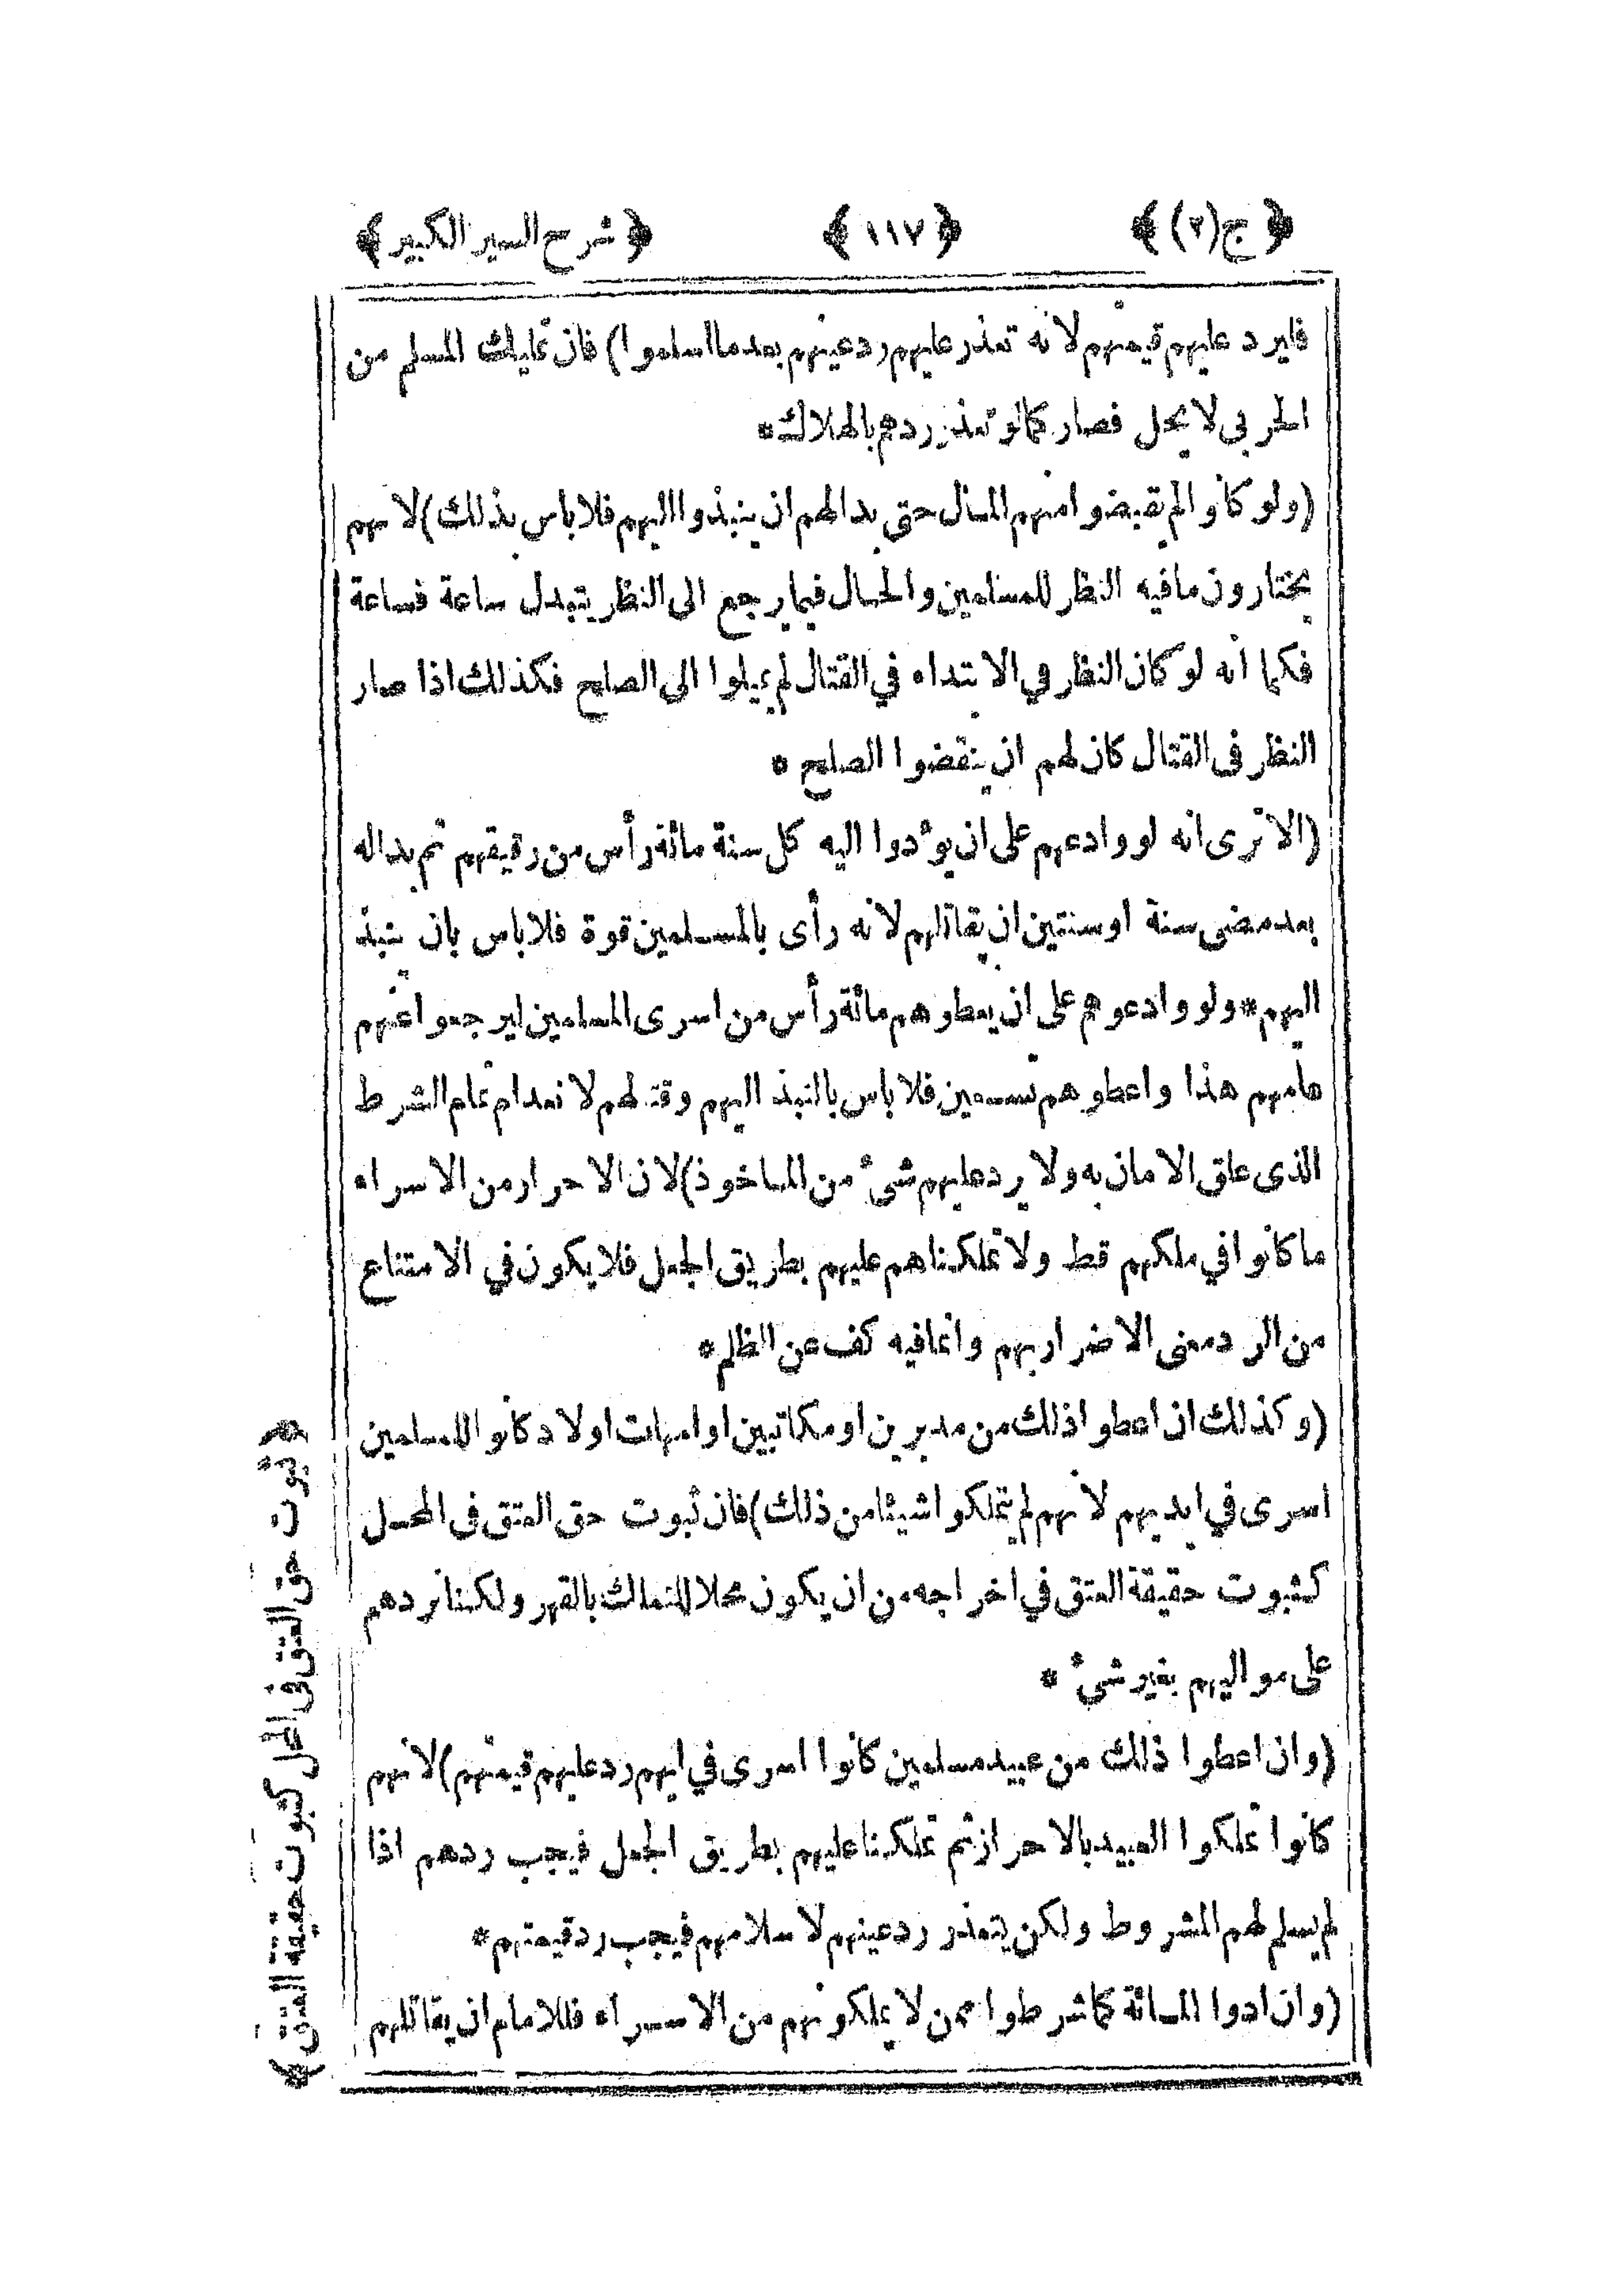 ﴿ج(٢)﴾ ﴿١١٧﴾ ﴿شرح السير الكبير﴾
فليرد عليهم قيمتهم لانه تعذر عليهم رد عينهم بعد ما اسلموا) فان تمليك المسلم من
الحربى لا يحل فصار كما لو تعذر ردهم بالهلاك*
(ولو كانوا لم يقبضوا منهم المال حتى بدا لهم ان ينبذوا اليهم فلا باس بذلك) لانهم
يختارون ما فيه النظر للمسلمين والحال فيما يرجع الى النظر يتبدل ساعة فساعة
فكما أنه لو كان النظر في الابتداء في القتال لم يميلوا الى الصلح فكذلك اذا صار
النظر فى القتال كان لهم ان ينقضوا الصلح *
(الا ترى انه لو وادعهم على ان يؤدوا اليه كل سنة مائة رأس من رقيقهم ثم بدا له
بعد مضى سنة او سنتين ان يقاتلهم لانه رأى بالمسلمين قوة فلا باس بان ينبذ
اليهم* ولو وادعوهم على ان يعطوهم مائة رأس من اسرى المسلمين ليرجعوا عنهم
عامهم هذا واعطوهم تسعين فلا باس بالنبذ اليهم وقتلهم لانعدام تمام الشرط
الذى علق الامان به ولا يرد عليهم شئ من الماخوذ) لان الاحرار من الاسراء
ما كانوا في ملكهم قط ولا تملكناهم عليهم بطريق الجعل فلا يكون في الامتناع
من الرد معنى الاضرار بهم وانما فيه كف عن الظلم*
(وكذلك ان اعطوا ذلك من مدبرين او مكاتبين او امهات اولاد كانوا للمسلمين
اسرى في ايديهم لانهم لم يتملكوا شيئا من ذلك) فان ثبوت حق العتق فى المحل
كثبوت حقيقة العتق في اخراجه من ان يكون محلا للتملك بالقهر ولكننا نردهم
على مواليهم بغير شئ *
(وان اعطوا ذلك من عبيد مسلمين كانوا اسرى في ايهم رد عليهم قيمتهم) لانهم
كانوا تملكوا العبيد بالاحراز ثم تملكنا عليهم بطريق الجعل فيجب ردهم اذا
لم يسلم لهم المشروط ولكن يتعذر رد عينهم لاسلامهم فيجب رد قيمتهم*
(وان ادوا المائة كما شرطوا ممن لا يملكونهم من الاسراء فللامام ان يقاتلهم
﴿ثبوت حق العتق فى المحل كثبوت حقيقة العتق﴾